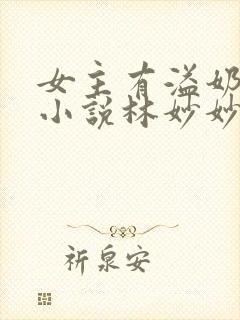 女主有溢奶
小说林妙妙
祈泉安